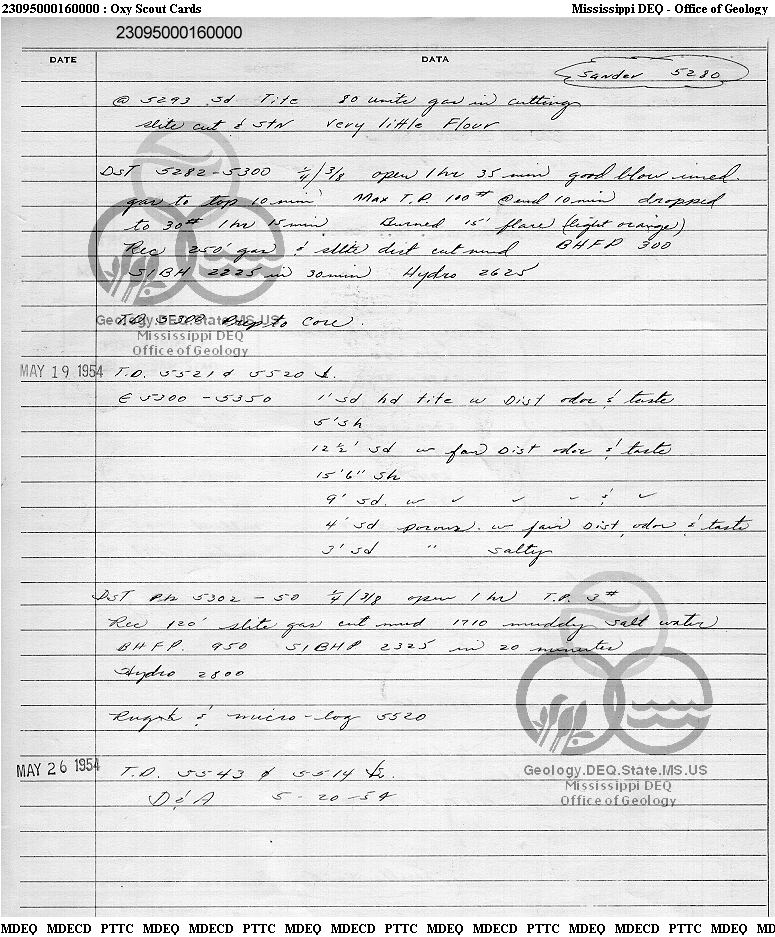 23095000160000 : Oxy Scout Cards Mississippi DEQ - Office of Geology
23095000160000
DATE DATA
Sander 5280
@ 5293 Sd Tite 80 units gas in cuttings
slite cut & STN Very little Flour
DST 5282-5300 1/4/3/8 open 1 hr 35 min good blow immed.
gas to top 10 min Max T.P. 100# @ end 10 min dropped
to 30# 1 hr 15 min Burned 15' flare (light orange)
Rec 250' gas & slite dist cut mud BHFP 300
SIBH 2225 in 30 min Hydro 2625
T.D. 5300 Prep to Core.
Geology.DEQ.State.MS.US
Mississippi DEQ
Office of Geology
MAY 19 1954 T.D. 5521 & 5520
5300-5350 1' sd hd tite w Dist odor & taste
5' sh
12 1/2' sd w fair Dist odor & taste
15'6" sh
9' sd. w ✓ ✓ ✓ & ✓
4' sd porous w fair Dist odor & taste
3' sd " salty
DST 5302-50 1/4/3/8 open 1 hr T.P. 3#
Rec 120' slite gas cut mud 1710 muddy salt water
BHFP. 950 SIBHP 2325 in 20 minutes
Hydro 2800
& micro-log 5520
MAY 26 1954 T.D. 5543 & 5514
D & A 5-20-54
Geology.DEQ.State.MS.US
Mississippi DEQ
Office of Geology
MDEQ MDECD PTTC MDEQ MDECD PTTC MDEQ MDECD PTTC MDEQ MDECD PTTC MDEQ MDECD PTTC MDEQ MD